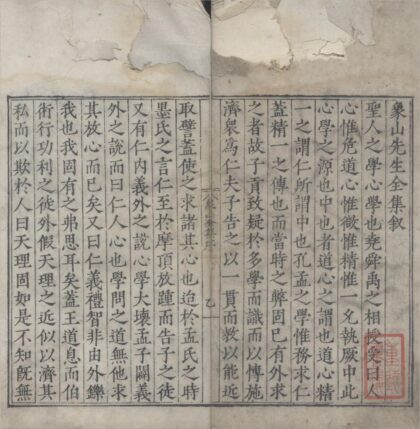 象山先生全集叙
聖人之學心學也堯舜禹之相授受曰人
心惟危道心惟微惟精惟一允執厥中此
心學之源也中也者道心之謂也道心精
一之謂仁所謂中也孔孟之學惟務求仁
蓋精一之傳也而當時之弊固已有外求
之者故子貢致疑於多學而識而以博施
濟衆爲仁夫子告之以一貫而教以能近
取譬蓋使之求諸其心也迨於孟氏之時
墨氏之言仁至於摩頂放踵而告子之徒
又有仁内義外之說心學大壞孟子闢義
外之說而曰仁人心也學問之道無他求
其放心而已矣又曰仁義禮智非由外鑠
我也我固有之弗思耳矣蓋王道息而伯
術行功利之徒外假天理之近似以濟其
私而以欺於人曰天理固如是不知旣無